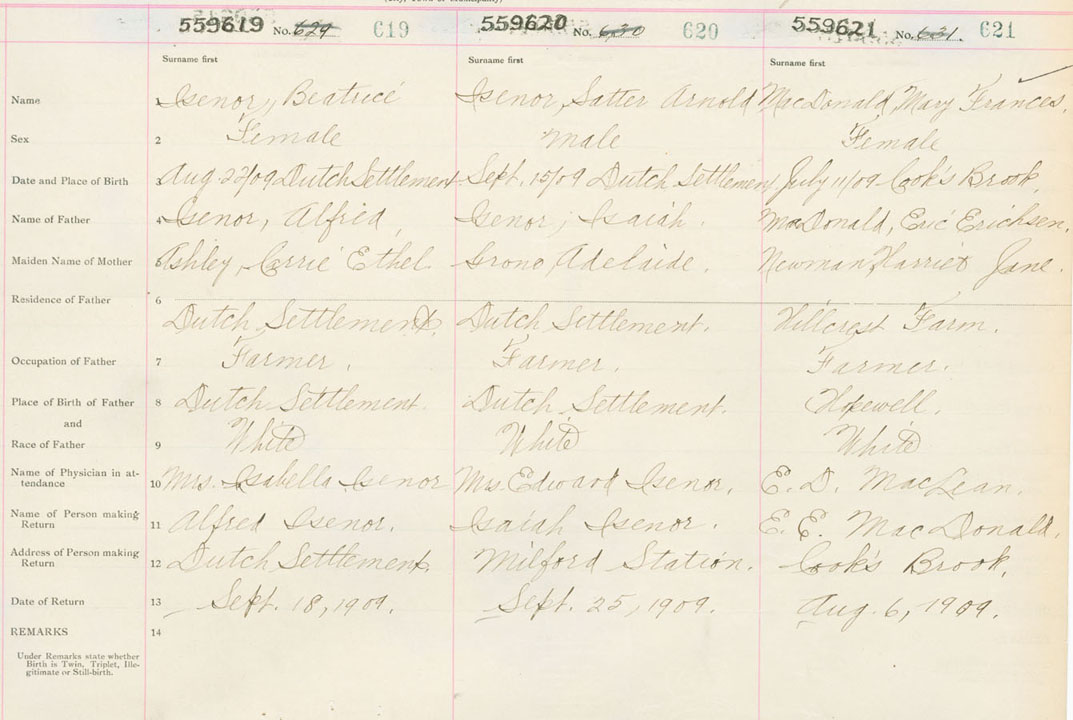 559619 No. 629 619
559620 No. 630 620
559621 No. 631. 621
Surname first Surname first Surname first
Name 1 Isenor, Beatrice Isenor, Satter Arnold MacDonald, Mary Frances.
Sex 2 Female Male Female
Date and Place of Birth 3 Aug. 22/09 Dutch Settlement Sept. 15/09 Dutch Settlement July 11/09 Cook's Brook.
Name of Father 4 Isenor, Alfred, Isenor, Isaiah. MacDonald, Eric Erichsen.
Maiden Name of Mother Ashley, Carrie Ethel Grono, Adelaide. Newman, Harriet Jane.
Residence of Father 6
Dutch Settlement. Dutch Settlement. Hillcrest Farm.
Occupation of Father 7 Farmer. Farmer. Farmer.
Place of Birth of Father 8 Dutch Settlement. Dutch Settlement. Hopewell.
and
Race of Father 9 White White White
Name of Physician in at-
tendance 10 Mrs. Isabella Isenor Mrs. Edward Isenor. E. D. MacLean.
Name of Person making
Return 11 Alfred Isenor. Isaiah Isenor. E. E. MacDonald.
Address of Person making
Return 12 Dutch Settlement. Milford Station. Cook's Brook.
Date of Return 13 Sept. 18, 1909. Sept. 25, 1909. Aug. 6, 1909.
REMARKS 14
Under Remarks state whether
Birth is Twin, Triplet, Ille-
gitimate or Still-birth.